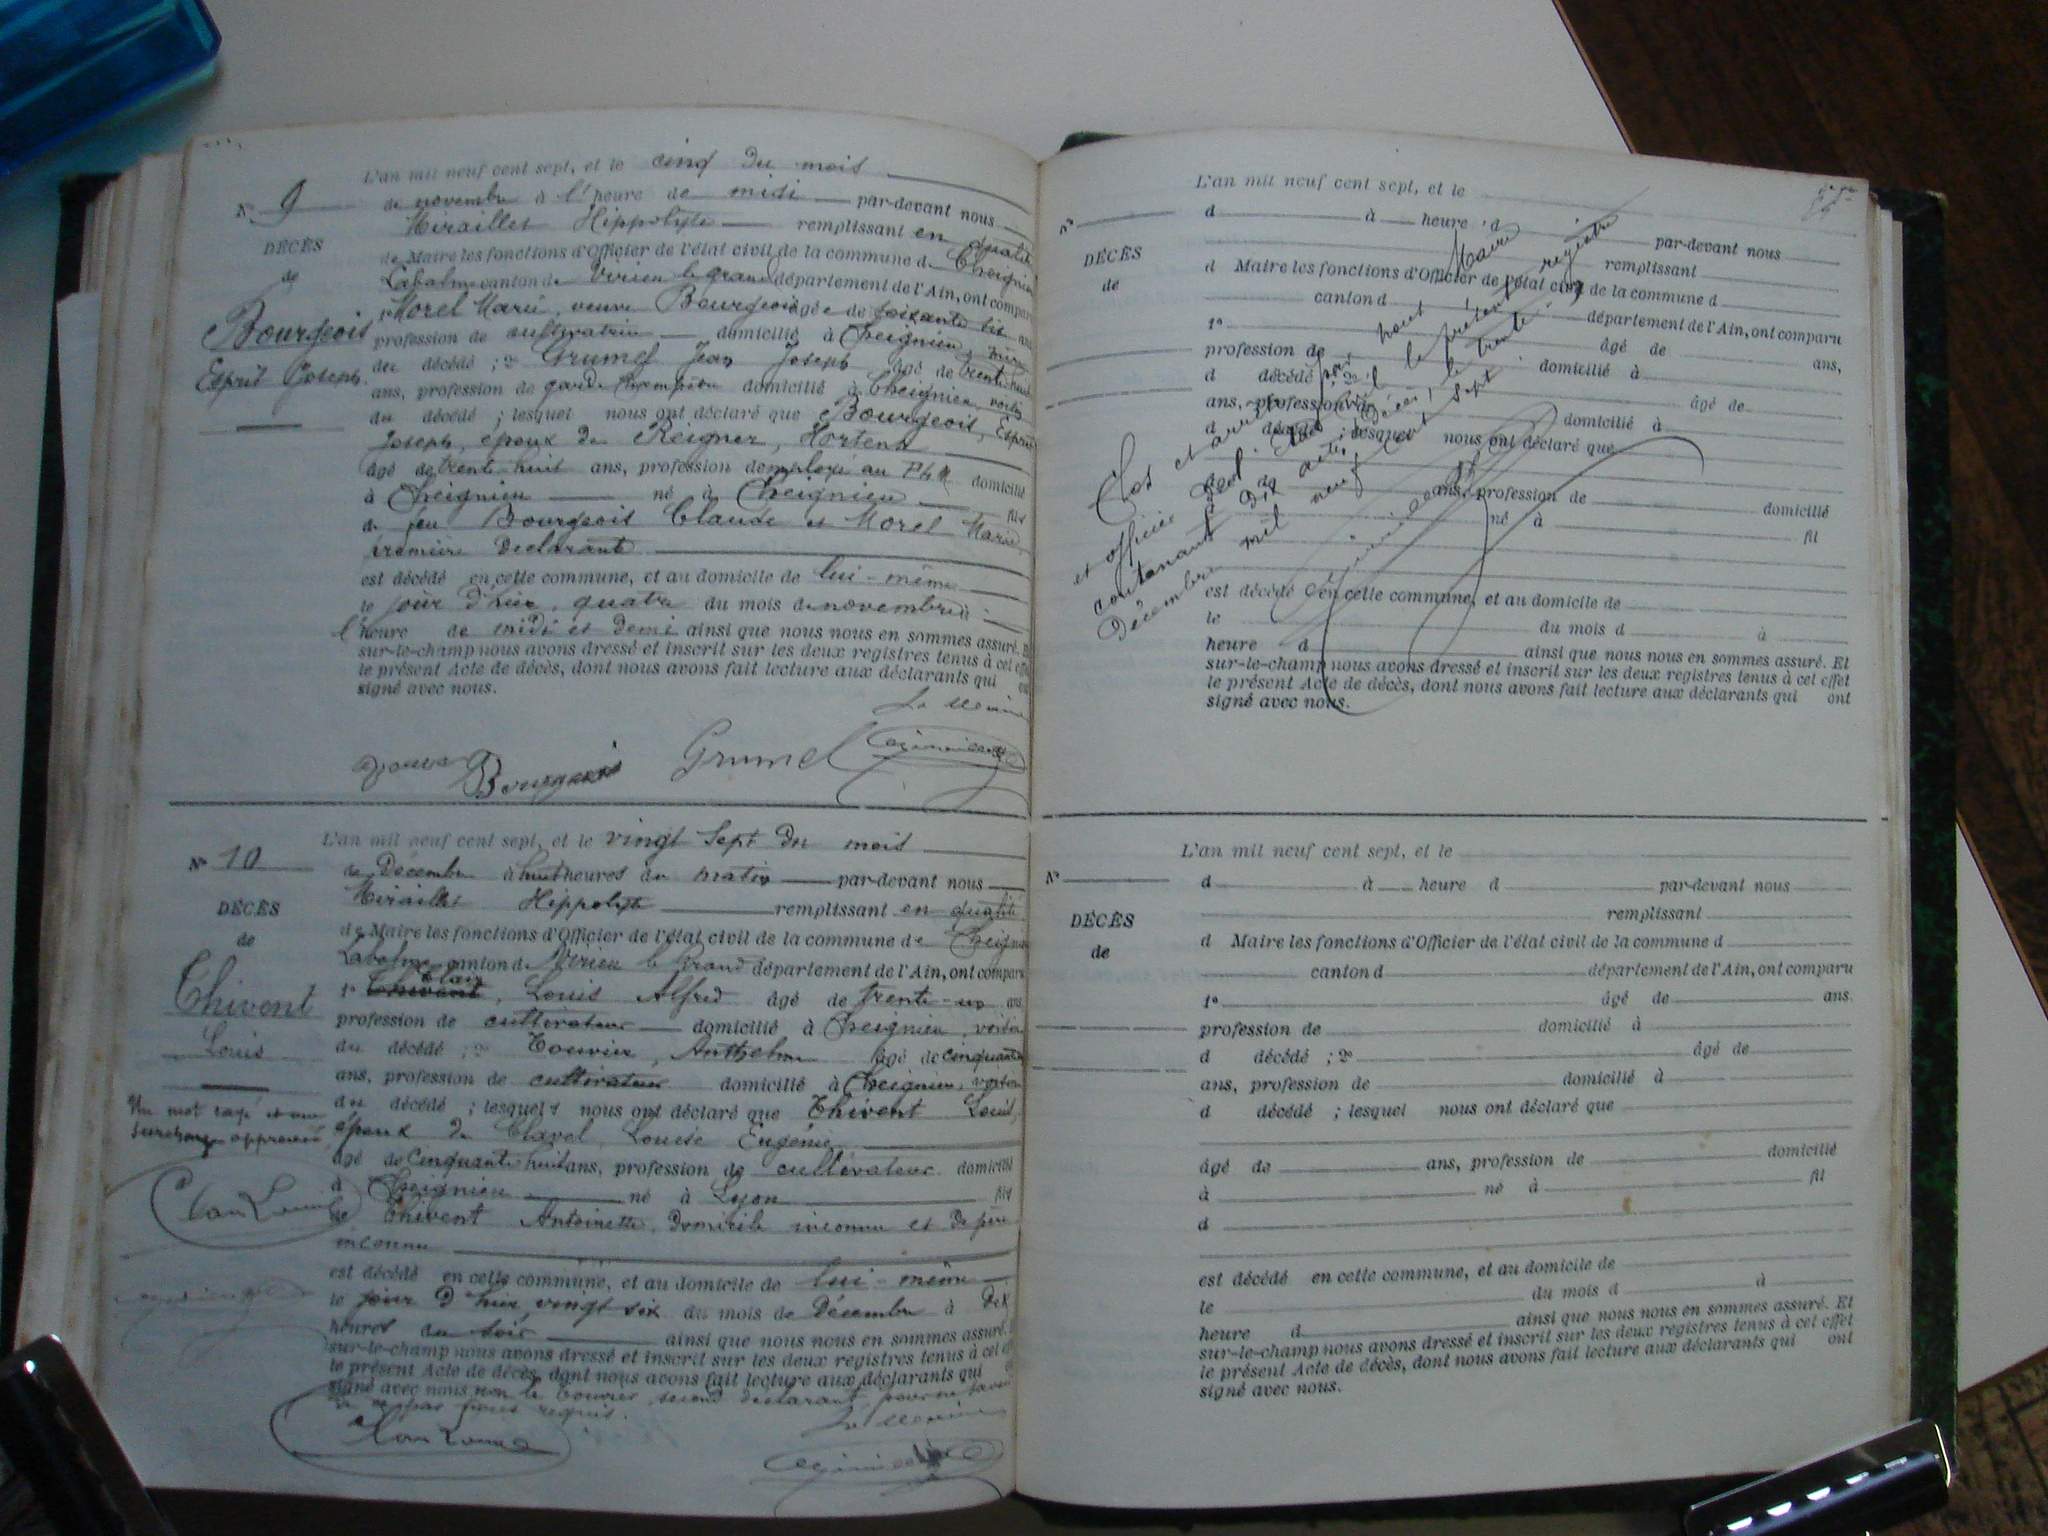 L'an mil neuf cent sept, et le cinq du mois
N° 9
de novembre à l'heure de midi par-devant nous
Miraillet Hippolyte remplissant en qualité
DÉCÈS
de Maire les fonctions d'Officier de l'état civil de la commune de Cheignieu
de
Labalme canton de Virieu le grand département de l'Ain, ont comparu
1° Morel Marie, veuve Bourgeois âgée de soixante six ans
Bourgeois
profession de cultivatrice domicilié à Cheignieu, mère
Esprit Joseph
du décédé ; 2° Grumel Jean Joseph âgé de trente huit
ans, profession de garde champêtre domicilié à Cheignieu, voisin
du décédé ; lesquel nous ont déclaré que Bourgeois, Esprit
Joseph, époux de Reigner, Hortense
âgé de trente huit ans, profession d'employé au P.L.M. domicilié
à Cheignieu né à Cheignieu fils
de feu Bourgeois Claude et Morel Marie,
première déclarante
est décédé en cette commune, et au domicile de lui-même
le jour d'hier, quatre du mois de novembre à
l'heure de midi et demi ainsi que nous nous en sommes assuré. Et
sur-le-champ nous avons dressé et inscrit sur les deux registres tenus à cet effet
le présent Acte de décès, dont nous avons fait lecture aux déclarants qui ont
signé avec nous.
Le Maire
Bourgeois Grumel
L'an mil neuf cent sept, et le vingt sept du mois
N° 10
de Décembre à huit heures du matin par-devant nous
Miraillet Hippolyte remplissant en qualité
DÉCÈS
de Maire les fonctions d'Officier de l'état civil de la commune de Cheignieu
de
Labalme canton de Virieu le Grand département de l'Ain, ont comparu
1° Thivent, Louis Alfred âgé de trente-un ans
Thivent
profession de cultivateur domicilié à Cheignieu, voisin
Louis
du décédé ; 2° Touvier, Anthelme âgé de cinquante
ans, profession de cultivateur domicilié à Cheignieu, voisin
Un mot rayé et une
surcharge approuvés
du décédé ; lesquels nous ont déclaré que Thivent Louis,
époux de Clavel, Louise Eugénie
âgé de cinquante huit ans, profession de cultivateur domicilié
à Cheignieu né à Lyon fils
de Thivent Antoinette, domicile inconnu et de père
inconnu
est décédé en cette commune, et au domicile de lui-même
le jour d'hier vingt six du mois de Décembre à dix
heures du soir ainsi que nous nous en sommes assuré. Et
sur-le-champ nous avons dressé et inscrit sur les deux registres tenus à cet effet
le présent Acte de décès, dont nous avons fait lecture aux déclarants qui ont
signé avec nous non le Touvier, second déclarant, pour ne savoir
de ce requis.
Le Maire
L'an mil neuf cent sept, et le
N°
d à heure d par-devant nous
remplissant
DÉCÈS
d Maire les fonctions d'Officier de l'état civil de la commune d
de
canton d département de l'Ain, ont comparu
1° âgé de ans,
profession de domicilié à
d décédé ; 2° âgé de
ans, profession de domicilié à
d décédé ; lesquel nous ont déclaré que
âgé de ans, profession de domicilié
à né à fil
d
est décédé en cette commune, et au domicile de
le du mois d à
heure d ainsi que nous nous en sommes assuré. Et
sur-le-champ nous avons dressé et inscrit sur les deux registres tenus à cet effet
le présent Acte de décès, dont nous avons fait lecture aux déclarants qui ont
signé avec nous.
Clos et arrêté par nous Maire
et officier de l'Etat civil le présent registre
contenant dix actes de décès, le trente
Décembre mil neuf cent sept
L'an mil neuf cent sept, et le
N°
d à heure d par-devant nous
remplissant
DÉCÈS
d Maire les fonctions d'Officier de l'état civil de la commune d
de
canton d département de l'Ain, ont comparu
1° âgé de ans.
profession de domicilié à
d décédé ; 2° âgé de
ans, profession de domicilié à
d décédé ; lesquel nous ont déclaré que
âgé de ans, profession de domicilié
à né à fil
d
est décédé en cette commune, et au domicile de
le du mois d à
heure d ainsi que nous nous en sommes assuré. Et
sur-le-champ nous avons dressé et inscrit sur les deux registres tenus à cet effet
le présent Acte de décès, dont nous avons fait lecture aux déclarants qui ont
signé avec nous.